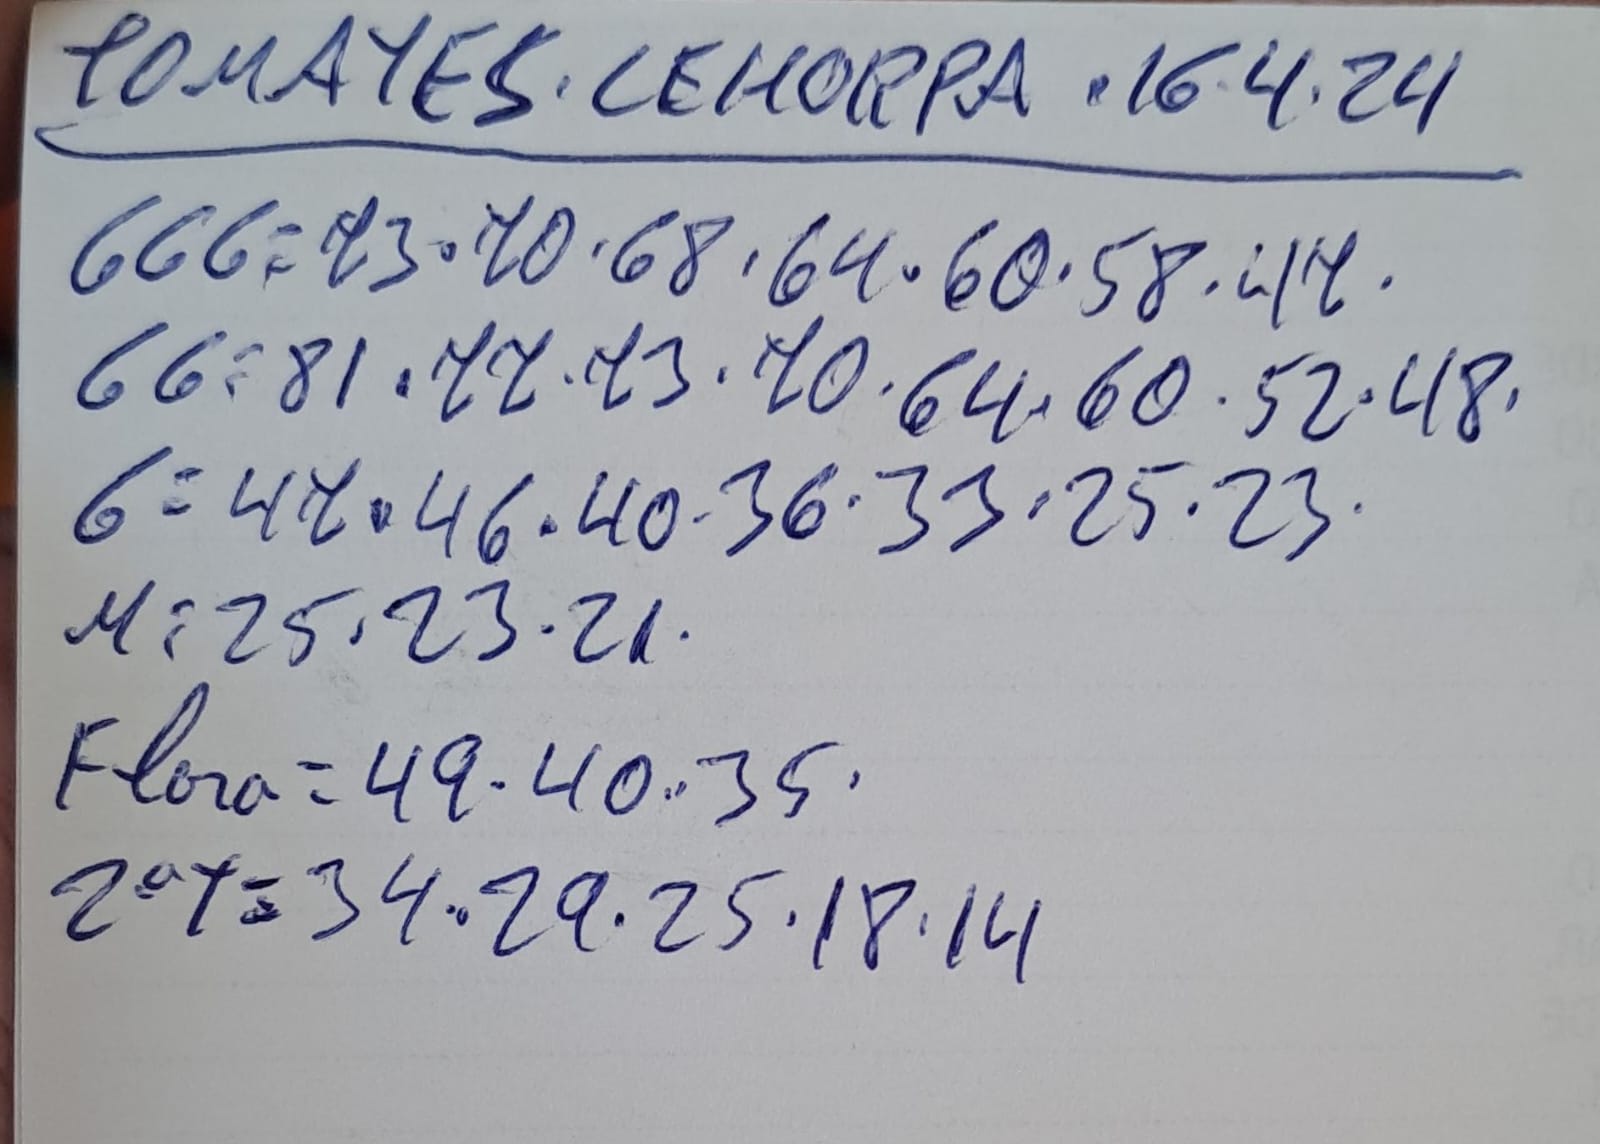 TOMATES. CEHORPA . 16.4.24
GGG = 73.70.68.64.60.58.47.
GG = 81.77.73.70.64.60.52.48.
G = 47.46.40.36.33.25.23.
M = 25.23.21.
Flora = 49.40.35.
2ªT = 34.29.25.18.14